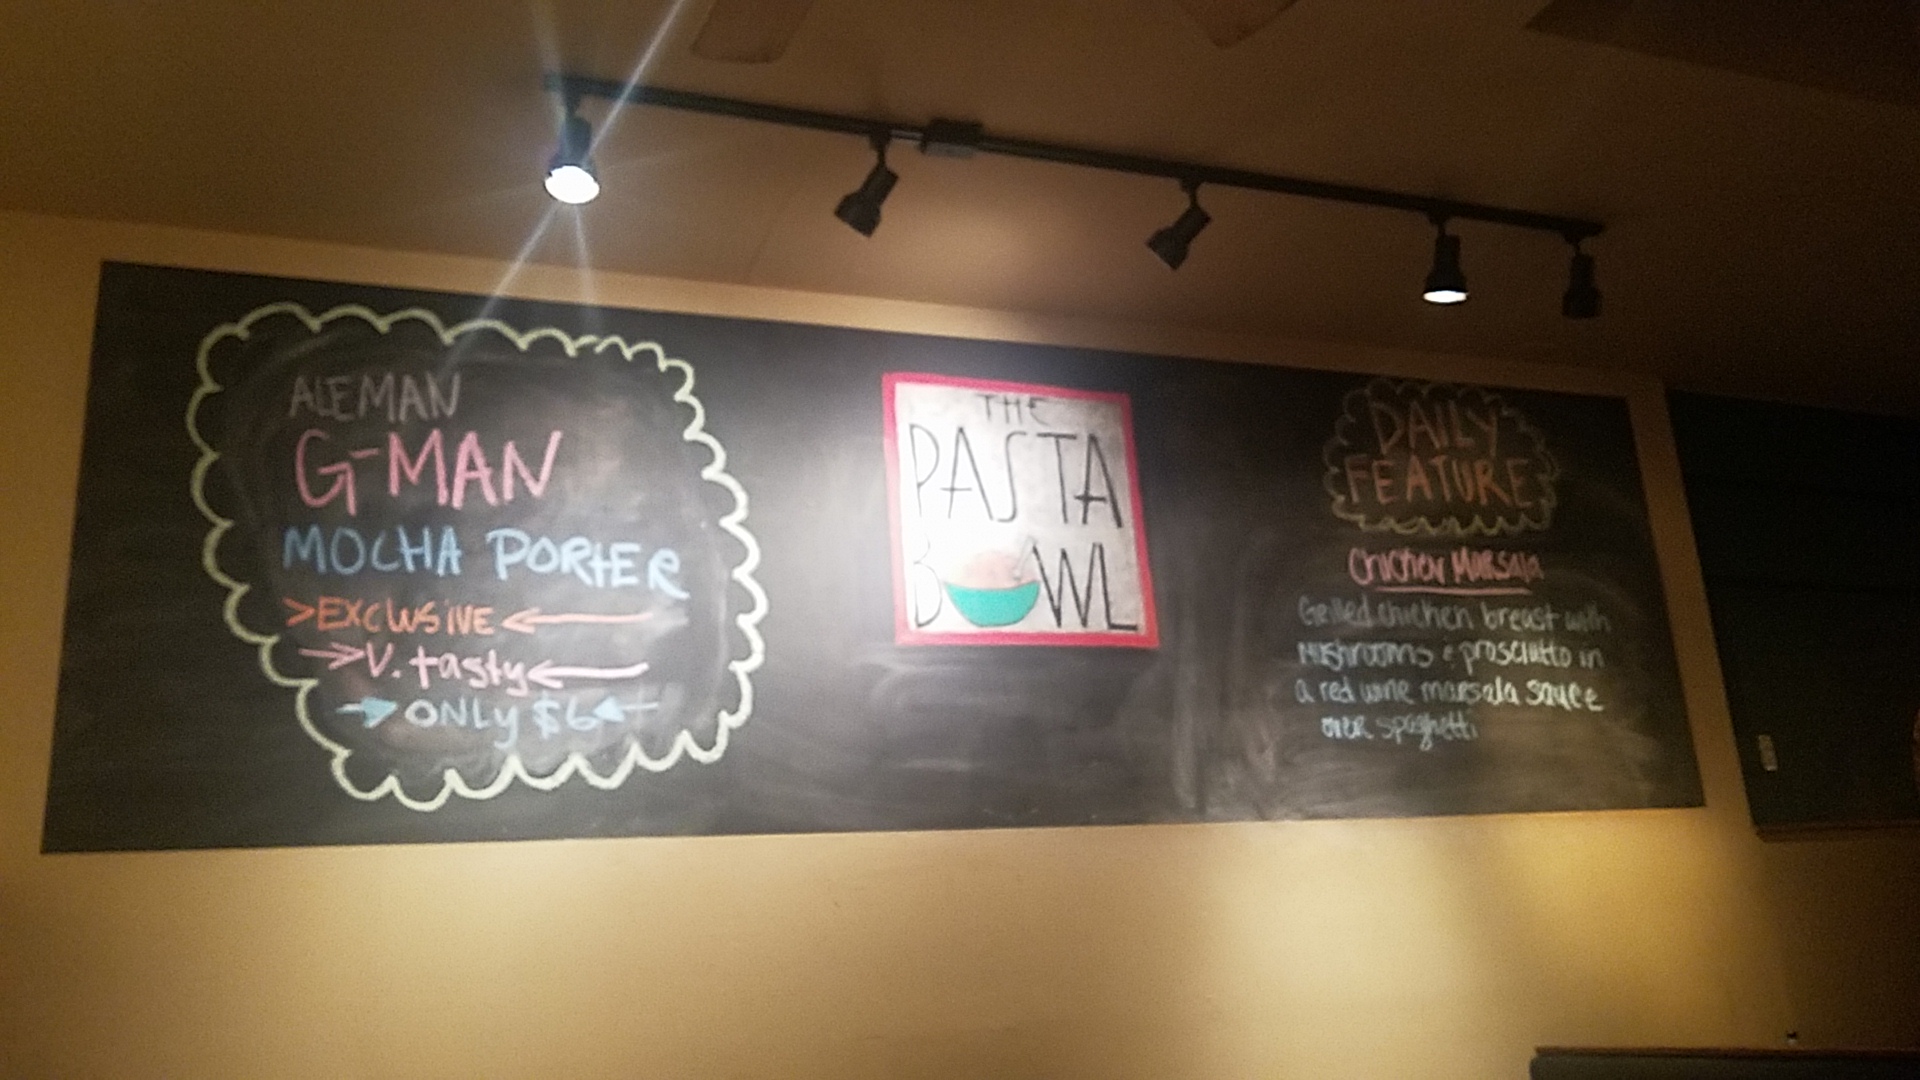 ALEMAN
G-MAN
MOCHA PORTER
>EXCLUSIVE
V. tasty
ONLY $6
THE
PASTA
BOWL
DAILY
FEATURE
Chicken Marsala
Grilled chicken breast with
mushrooms & prosciutto in
a red wine marsala sauce
over spaghetti